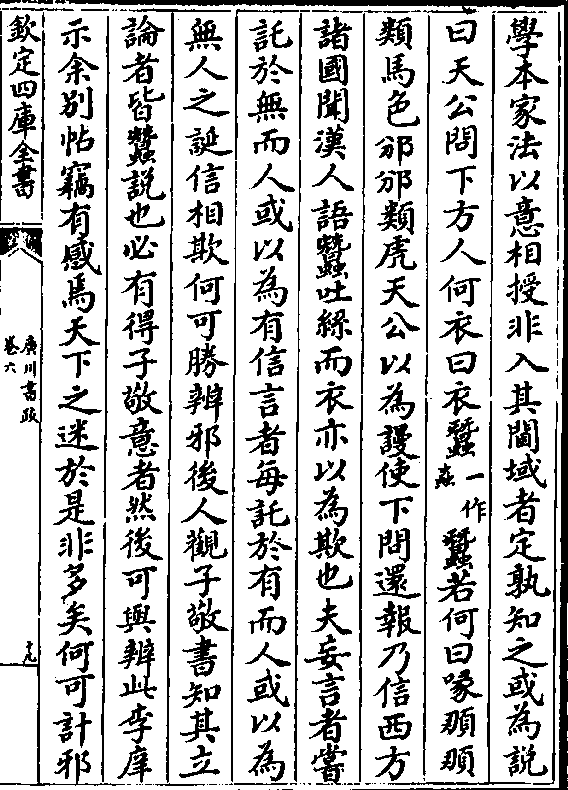 學本家法以意相授非入其閫域者定孰知之或為說
曰天公問下方人何衣曰衣蠶一作蟲蠶若何曰喙顒顒
類馬色邠邠類虎天公以為謾使下問還報乃信西方
諸國聞漢人語蠶吐絲而衣亦以為欺也夫妄言者嘗
託於無而人或以為有信言者每託於有而人或以為
無人之誕信相欺何可勝辨邪後人觀子敬書知其立
論者皆蠶說也必有得子敬意者然後可與辨此李庠
示余别帖竊有感焉天下之迷於是非多矣何可計邪
欽定四庫全書
廣川書跋
卷六
十九